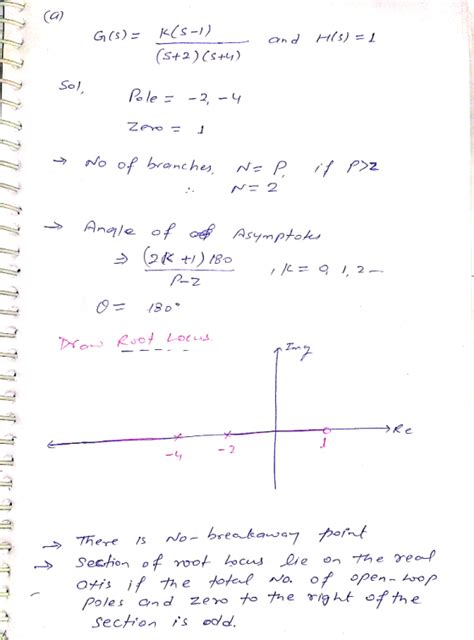 (a)
G(s) = K(s-1) / (s+2)(s+4) and H(s) = 1
Sol,
Pole = -2, -4
Zero = 1
→ No of branches, N = P, if P>Z
∴ N = 2
→ Angle of Asymptotes
⇒ (2K+1)180 / P-Z , K = 0, 1, 2 --
θ = 180°
Draw Root Locus
Img
Re
-4 -2 1
→ There is No-breakaway point
→ Section of root locus lie on the real
axis if the total No. of open-loop
poles and zero to the right of the
section is odd.